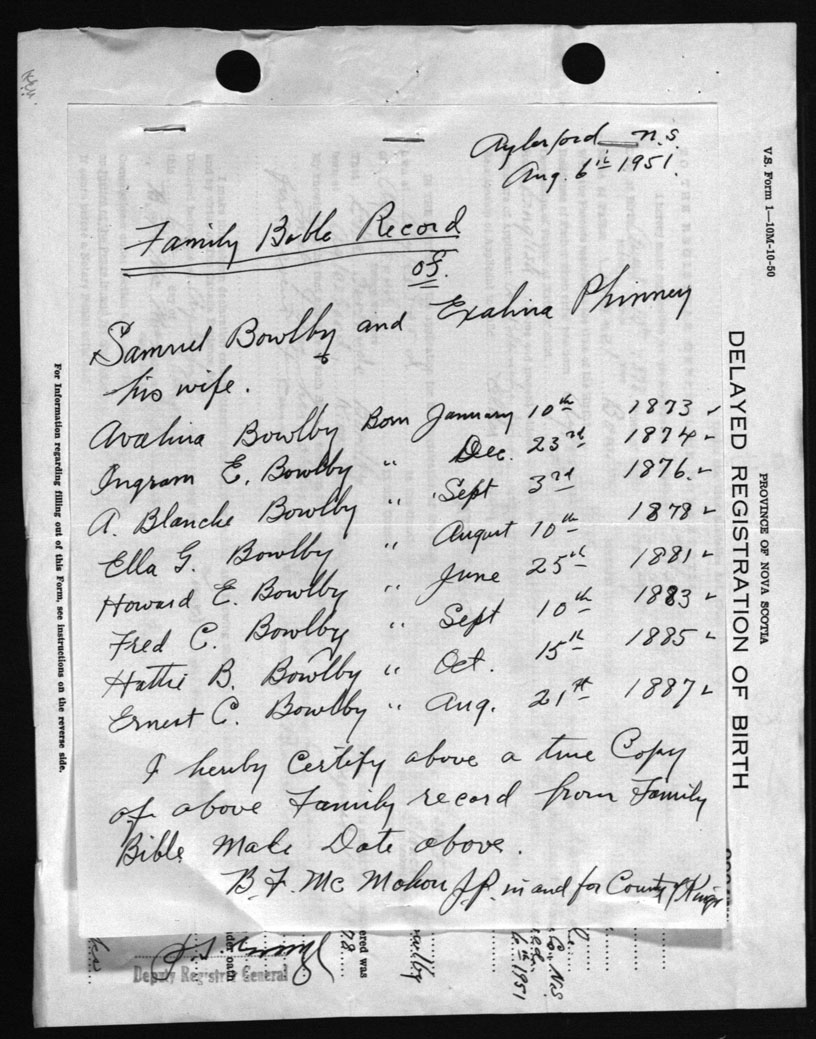 Aylesford N.S.
Aug. 6th 1951.
Family Bible Record
of.
Samuel Bowlby and Exalina Phinney
his wife.
Avalina Bowlby Born January 10th 1873
Ingram E. Bowlby " Dec. 23rd 1874
A. Blanche Bowlby " Sept 3rd 1876.
Ella G. Bowlby " August 10th 1878
Howard E. Bowlby " June 25th 1881
Fred C. Bowlby " Sept 10th 1883
Hattie B. Bowlby " Oct. 15th 1885
Ernest C. Bowlby " Aug. 21st 1887
I hereby Certify above a true Copy
of above Family record from Family
Bible Make Date above.
B. F. McMahon J.P. in and for County of Kings
V.S. Form 1—10M-10-50
PROVINCE OF NOVA SCOTIA
DELAYED REGISTRATION OF BIRTH
For Information regarding filling out of this Form, see instructions on the reverse side.
Deputy Registrar General
ered was
6th 1951